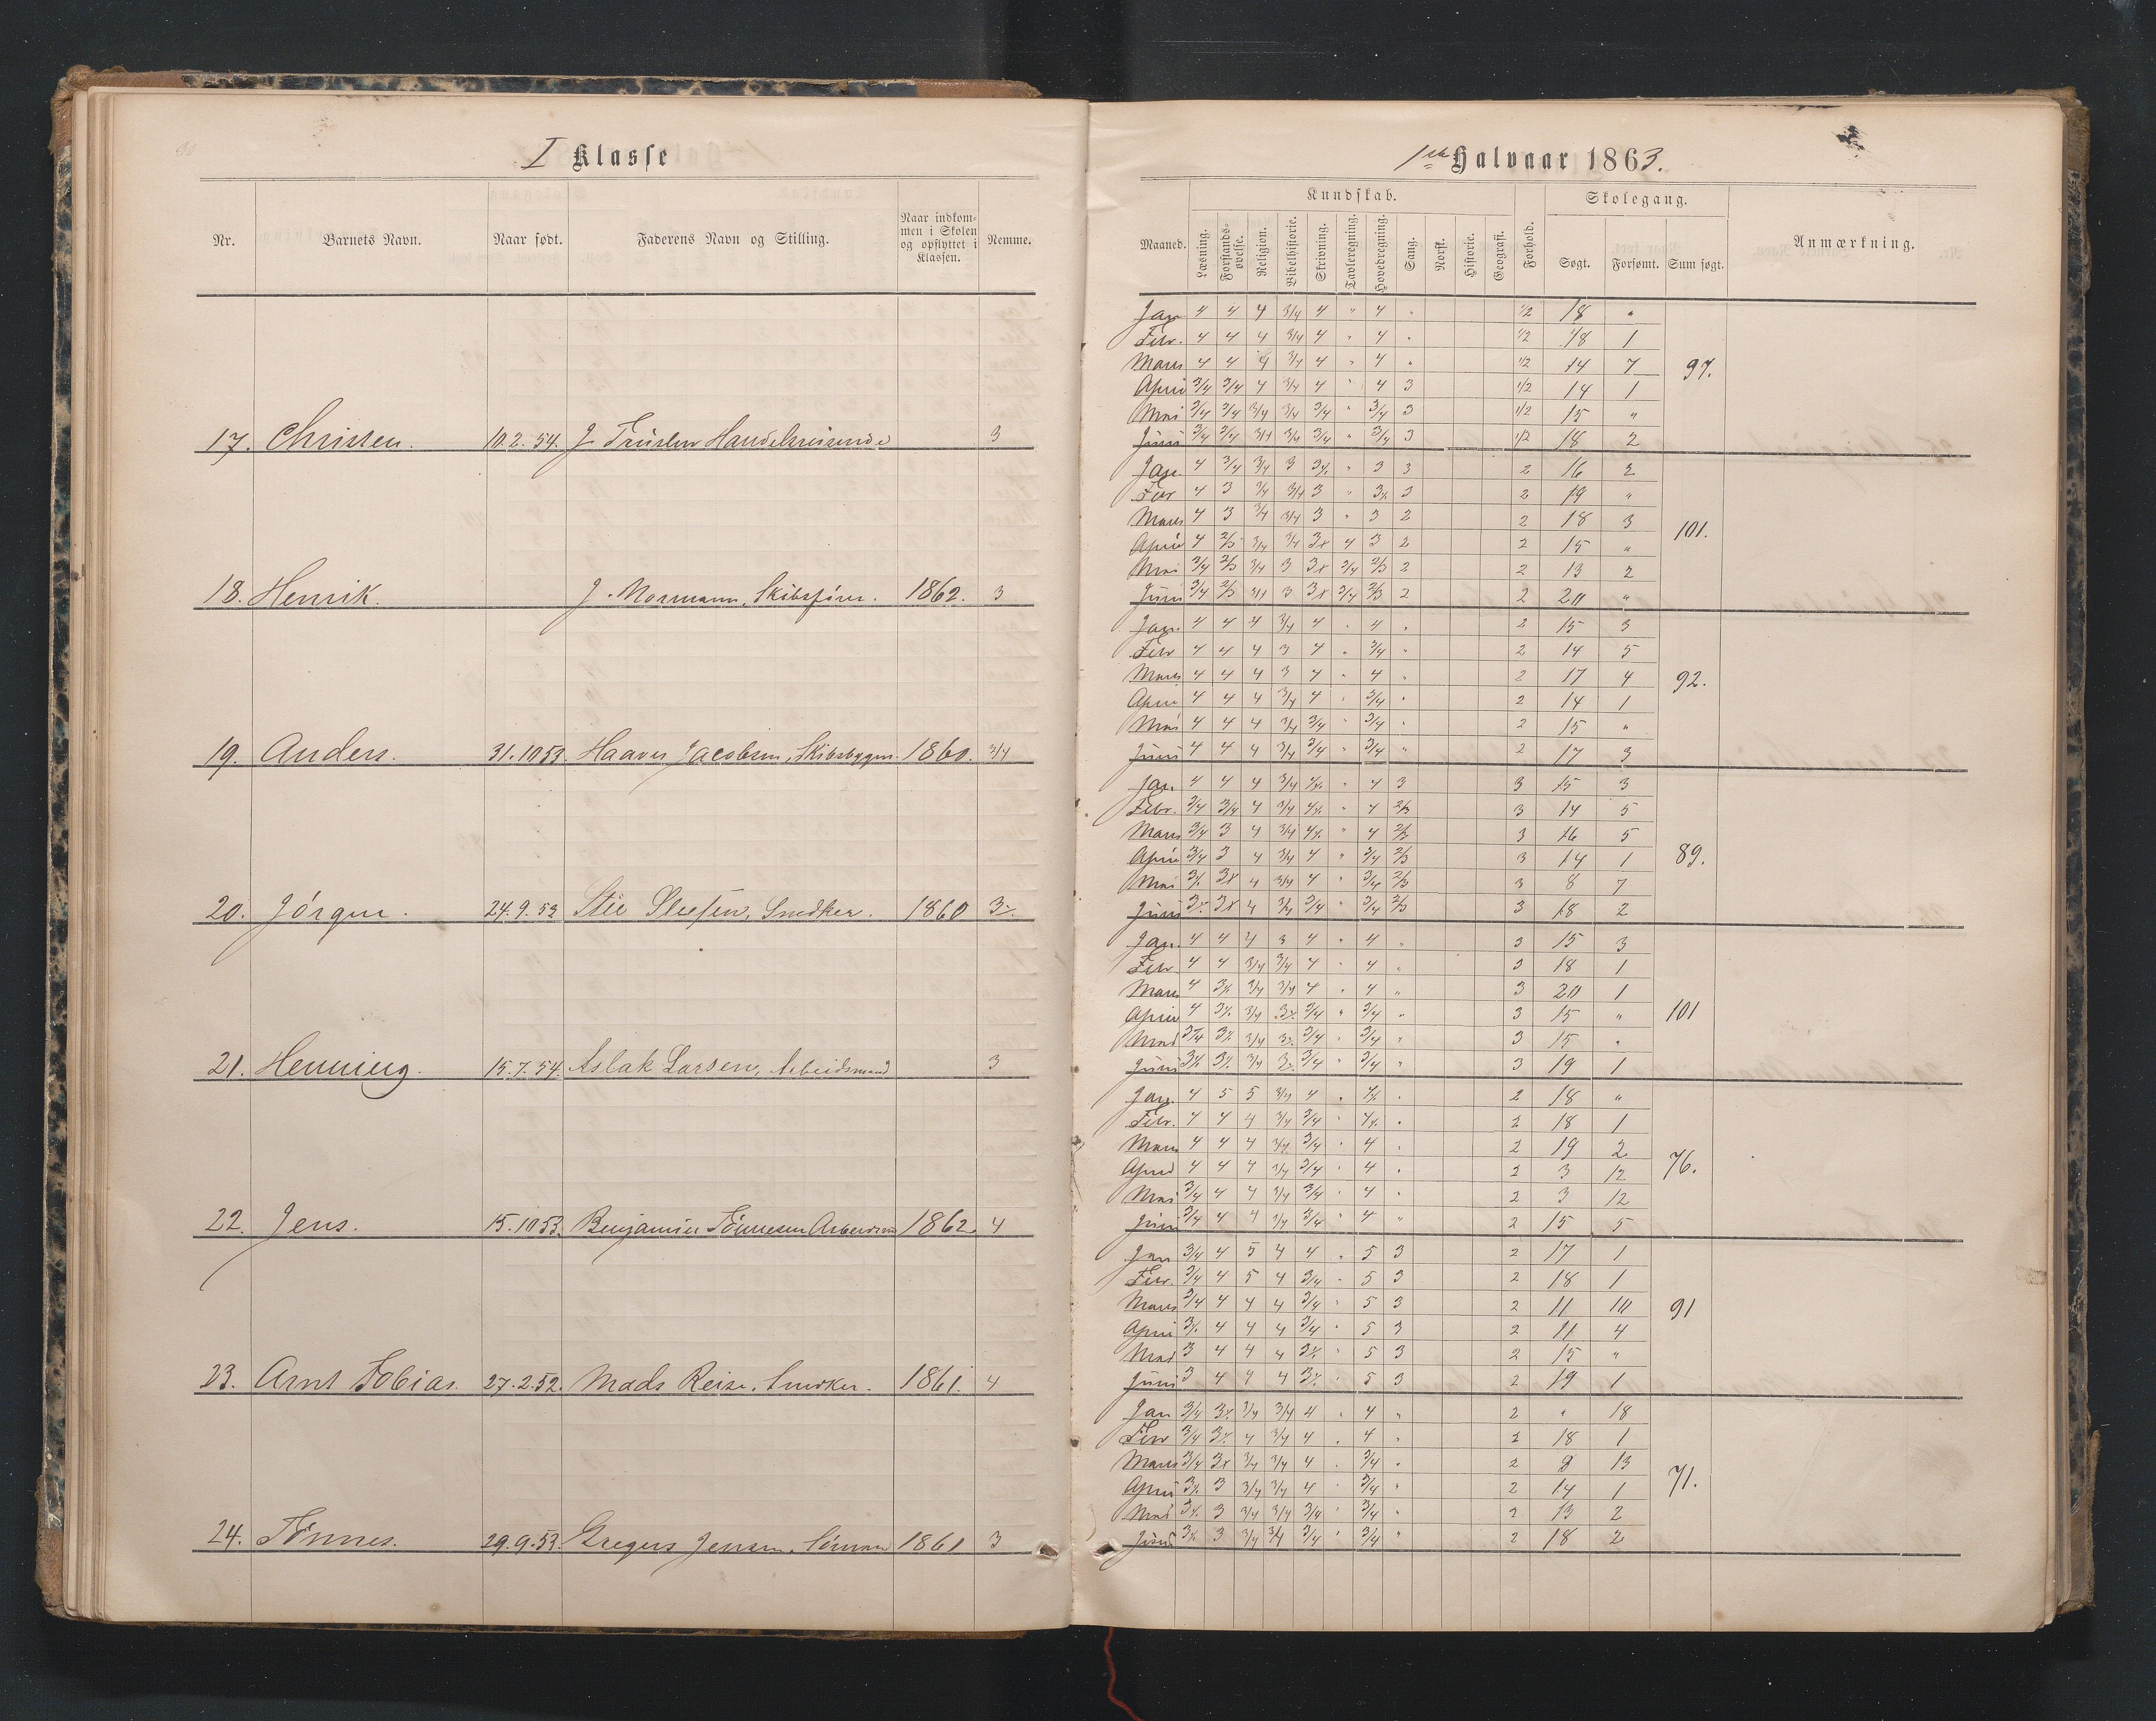 30
I Klasse
Nr. Barnets Navn. Naar født. Faderens Navn og Stilling. Naar indkommen i Skolen og opflyttet i Klassen. Nemme.
17. Christen. 10.2.54. J Handelsreisende 3
18. Henrik. J. Normann, Skibsfører. 1862. 3
19. Anders. 31.10 53. Jacobsen, Skibsbygm. 1860. 3/4
20. Jörgen. 24.9.53 Snedker. 1860 3
21. Henning. 15.7.54. Aslak Larsen, Arbeidsmand 3
22. Jens. 15.10 53. Benjamin Tönnesen 1862. 4
23. Arnt Tobias. 27.2.52. Mads Reise, Snedker. 1861. 4
24. Tönnes. 29.9.53 Gregers Jensen, 1861 3
1ste Halvaar 1863.
Kundskab. Skolegang.
Maaned. Læsning. Forstandsøvelse. Religion. Bibelhistorie. Skrivning. Tavleregning. Hovedregning. Sang. Norsk. Historie. Geografi. Forhold. Søgt. Forsømt. Sum søgt. Anmærkning.
Jan 4 4 4 3/4 4 " 4 " 1/2 18 "
Febr. 4 4 4 3/4 4 " 4 " 1/2 18 1
Marts 4 4 4 3/4 4 " 4 " 1/2 14 7 97.
April 3/4 3/4 4 3/4 4 " 4 3 1/2 14 1
Mai 3/4 3/4 3/4 3/4 3/4 " 3/4 3 1/2 15 "
Juni 3/4 3/4 3/4 3/4 3/4 " 3/4 3 1/2 18 2
Jan. 4 3/4 3/4 3 " 3 3 2 16 2
Febr 4 3 3/4 3/4 3 " 3 2 19 "
Marts 4 3 3/4 3/4 3 " 3 2 2 18 3
April 4 2/3 3/4 3/4 3x 4 3 2 2 15 " 101.
Mai 3/4 2/3 3/4 3 3x 3/4 2/3 2 2 13 2
Juni 3/4 2/3 3/4 3 3x 3/4 2/3 2 2 20 "
Jan. 4 4 4 3/4 4 " 4 " 2 15 3
Febr 4 4 4 3 4 " 3/4 " 2 14 5
Marts 4 4 4 3 4 " 4 " 2 17 4 92.
April 4 4 4 3/4 4 " 3/4 " 2 14 1
Mai 4 4 4 3/4 3/4 " 3/4 " 2 15 "
Juni 4 4 4 3/4 3/4 " 3/4 " 2 17 3
Jan. 4 4 4 3/4 4x " 4 3 3 15 3
Febr. 3/4 3/4 4 3/4 4x " 4 2/3 3 14 5
Marts 3/4 3 4 3/4 4x " 4 2/3 3 16 5
April 3/4 3 4 3/4 4 " 3/4 2/3 3 14 1 89.
Mai 3x 3x 4 3/4 4 " 3/4 2/3 3 8 7
Juni 3x 3x 4 3/4 3/4 " 3/4 2/3 3 18 2
Jan. 4 4 4 3 4 " 4 " 3 15 3
Febr 4 4 3/4 3/4 4 " 4 " 3 18 1
Marts 4 3x 3/4 3/4 4 " 4 " 3 20 1
April 4 3x 3/4 3x 3/4 " 3/4 " 3 15 " 101
Mai 3/4 3x 3/4 3x 3/4 " 3/4 " 3 15 "
Juni 3x 3x 3/4 3x 3/4 " 3/4 " 3 19 1
Jan. 4 5 5 3/4 4 " 4x " 2 18 "
Febr. 4 4 4 3/4 3/4 " 4x " 2 18 1
Marts 4 4 4 3/4 3/4 " 4 " 2 19 2
April 4 4 4 3/4 3/4 " 4 " 2 3 12 76.
Mai 3/4 4 4 3/4 3/4 " 4 " 2 3 12
Juni 3/4 4 4 3/4 3/4 " 4 " 2 15 5
Jan 3/4 4 5 4 4 " 5 3 2 17 1
Febr. 3/4 4 5 4 3/4 " 5 3 2 18 1
Marts 3/4 4 4 4 3/4 " 5 3 2 11 10 91
April 3x 4 4 4 3/4 " 5 3 2 11 4
Mai 3 4 4 4 3x " 5 3 2 15 "
Juni 3 4 4 4 3x " 5 3 2 19 1
Jan 3/4 3x 3/4 3/4 4 " 4 " 2 " 18
Febr 3/4 3x 4 3/4 4 " 4 " 2 18 1
Marts 3/4 3x 3/4 3/4 4 " 3/4 " 2 8 13
April 3x 3 3/4 3/4 4 " 3/4 " 2 14 1 71.
Mai 3x 3 3/4 3/4 3/4 " 3/4 " 2 13 2
Juni 3x 3 3/4 3/4 3/4 " 3/4 " 2 18 2